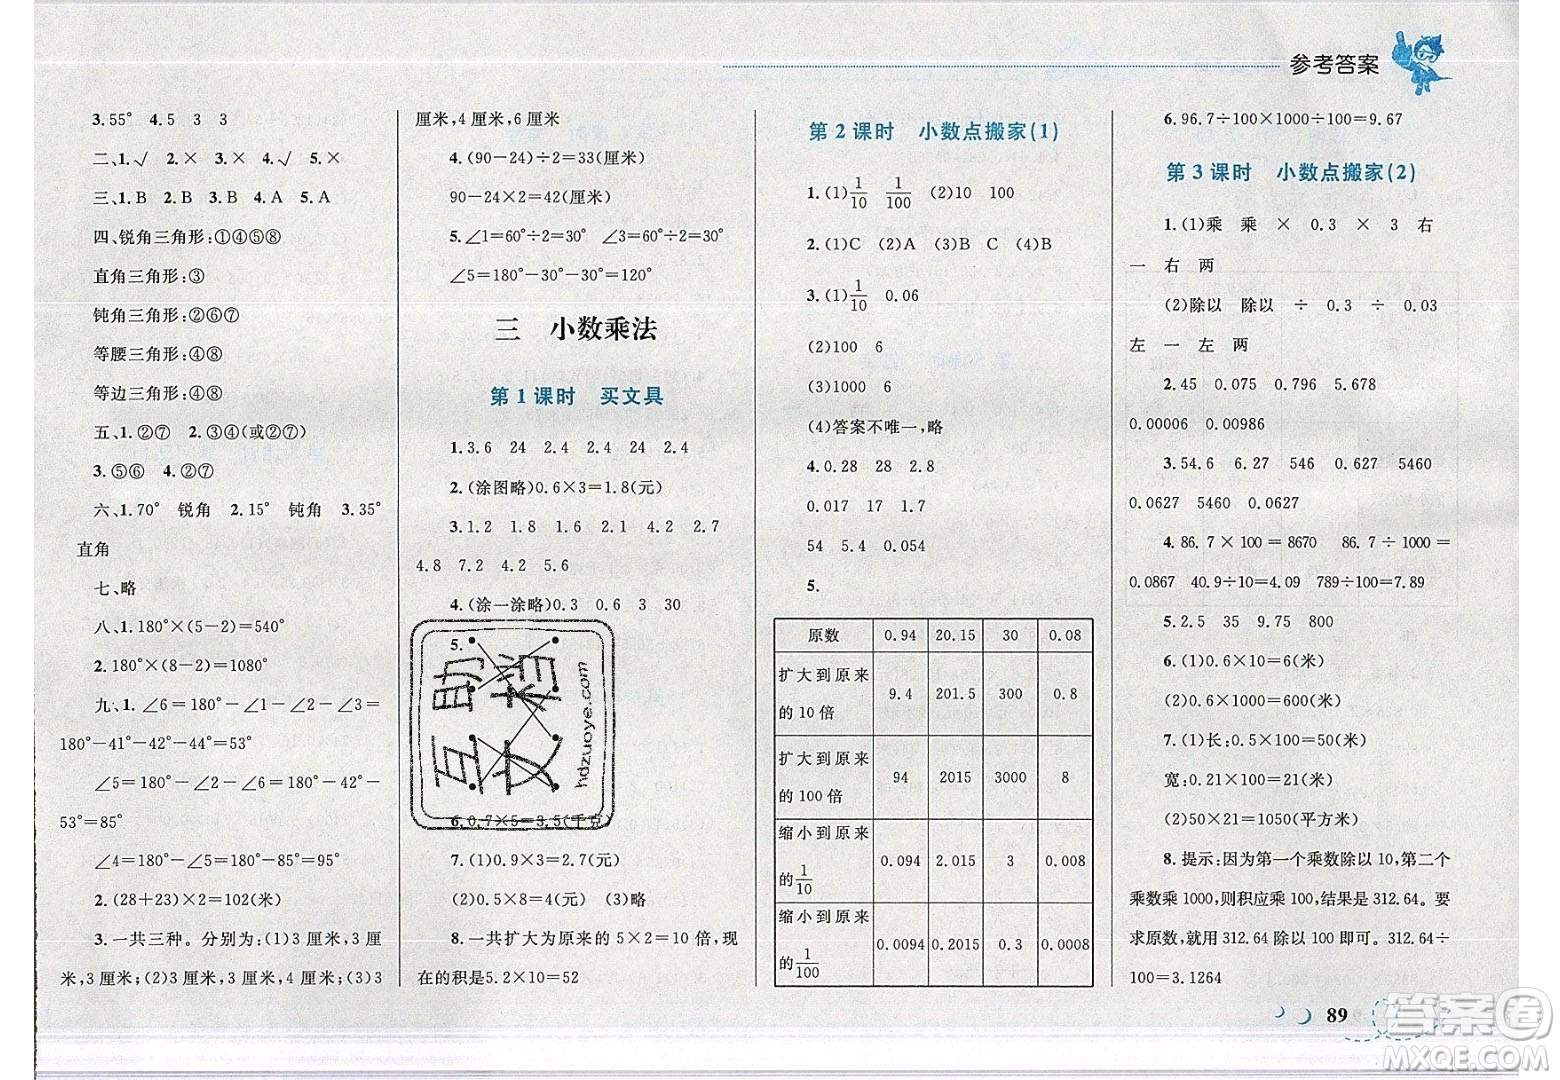 参考答案
3.55° 4.5 3 3
二、1.√ 2.× 3.× 4.√ 5.×
三、1.B 2.B 3.B 4.A 5.A
四、锐角三角形:①④⑤⑧
直角三角形:③
钝角三角形:②⑥⑦
等腰三角形:④⑧
等边三角形:④⑧
五、1.②⑦ 2.③④(或②⑦)
3.⑤⑥ 4.②⑦
六、1.70° 锐角 2.15° 钝角 3.35°
直角
七、略
八、1.180°×(5-2)=540°
2.180°×(8-2)=1080°
九、1.∠6=180°-∠1-∠2-∠3=
180°-41°-42°-44°=53°
∠5=180°-∠2-∠6=180°-42°-
53°=85°
∠4=180°-∠5=180°-85°=95°
2.(28+23)×2=102(米)
3.一共三种。分别为:(1)3厘米,3厘
米,3厘米;(2)3厘米,3厘米,4厘米;(3)3
厘米,4厘米,6厘米
4.(90-24)÷2=33(厘米)
90-24×2=42(厘米)
5.∠1=60°÷2=30° ∠2=60°÷2=30°
∠5=180°-30°-30°=120°
三 小数乘法
第1课时 买文具
1.3.6 24 2.4 24 2.4
2.(涂图略)0.6×3=1.8(元)
3.1.2 1.8 1.6 2.1 4.2 2.7
4.8 7.2 4.2 5.6
4.(涂一涂略)0.3 0.6 3 30
5.
互助文档
hdzuoye.com
6.0.7×5=3.5(千克)
7.(1)0.9×3=2.7(元)
(2)0.5×8=4(元) (3)略
8.一共扩大为原来的5×2=10倍,现
在的积是5.2×10=52
第2课时 小数点搬家(1)
1.(1)1/10 1/100 (2)10 100
2.(1)C (2)A (3)B C (4)B
3.(1)1/10 0.06
(2)100 6
(3)1000 6
(4)答案不唯一,略
4.0.28 28 2.8
0.017 17 1.7
54 5.4 0.054
5.
原数 0.94 20.15 30 0.08
扩大到原来的10倍 9.4 201.5 300 0.8
扩大到原来的100倍 94 2015 3000 8
缩小到原来的1/10 0.094 2.015 3 0.008
缩小到原来的1/100 0.0094 0.2015 0.3 0.0008
6.96.7÷100×1000÷100=9.67
第3课时 小数点搬家(2)
1.(1)乘 乘 × 0.3 × 3 右
一 右 两
(2)除以 除以 ÷ 0.3 ÷ 0.03
左 一 左 两
2.45 0.075 0.796 5.678
0.00006 0.00986
3.54.6 6.27 546 0.627 5460
0.0627 5460 0.0627
4.86.7×100=8670 86.7÷1000=
0.0867 40.9÷10=4.09 789÷100=7.89
5.2.5 35 9.75 800
6.(1)0.6×10=6(米)
(2)0.6×1000=600(米)
7.(1)长:0.5×100=50(米)
宽:0.21×100=21(米)
(2)50×21=1050(平方米)
8.提示:因为第一个乘数除以10,第二个
乘数乘1000,则积应乘100,结果是312.64。要
求原数,就用312.64除以100即可。312.64÷
100=3.1264
89
答案圈
MXQE.COM